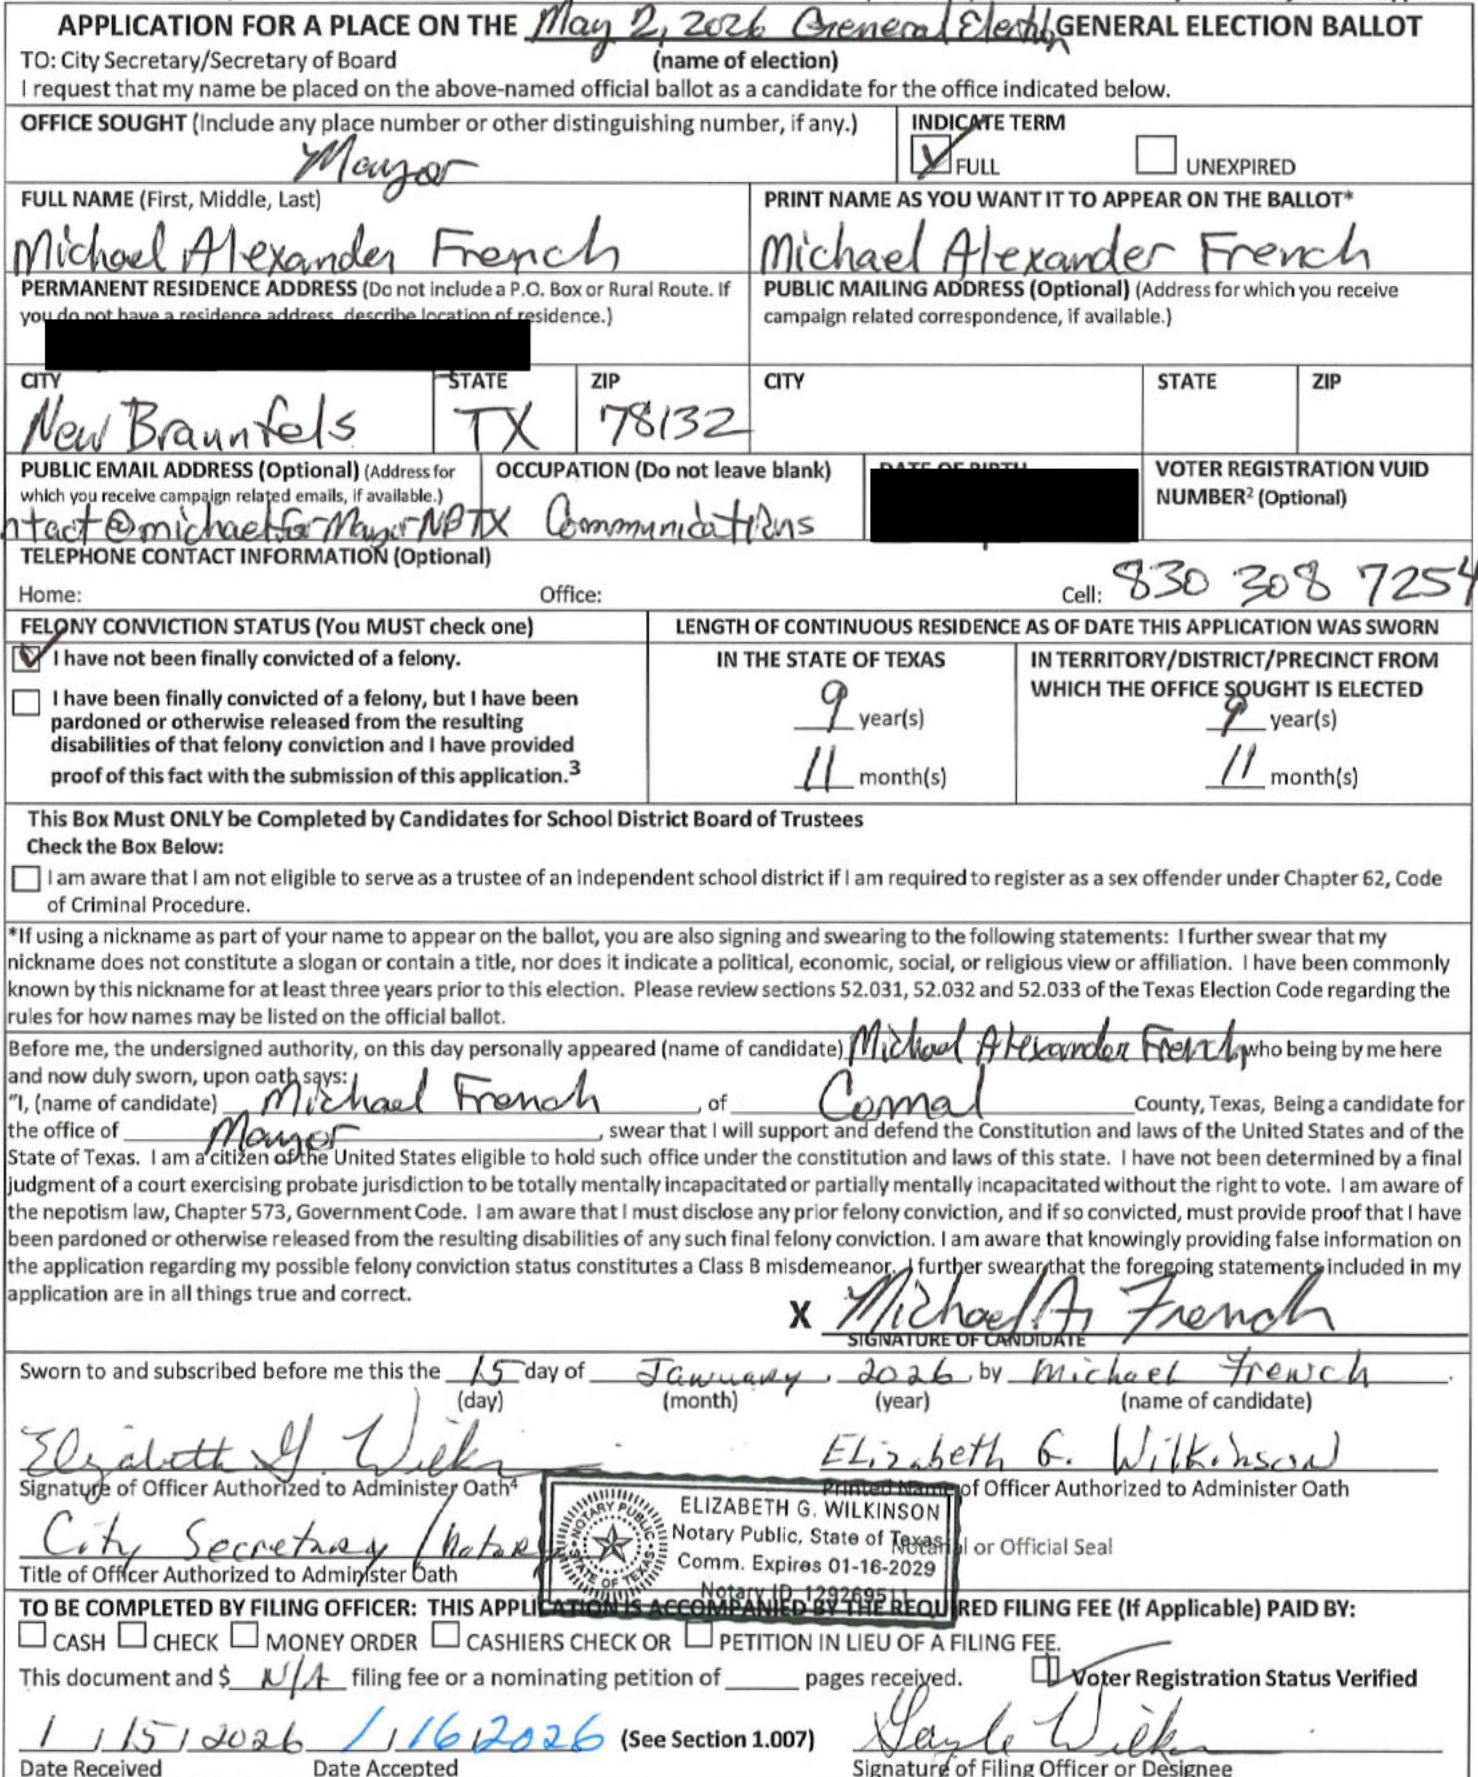 APPLICATION FOR A PLACE ON THE May 2, 2026 General Election GENERAL ELECTION BALLOT
TO: City Secretary/Secretary of Board (name of election)
I request that my name be placed on the above-named official ballot as a candidate for the office indicated below.
OFFICE SOUGHT (Include any place number or other distinguishing number, if any.) INDICATE TERM
Mayor FULL UNEXPIRED
FULL NAME (First, Middle, Last) PRINT NAME AS YOU WANT IT TO APPEAR ON THE BALLOT*
Michael Alexander French Michael Alexander French
PERMANENT RESIDENCE ADDRESS (Do not include a P.O. Box or Rural Route. If PUBLIC MAILING ADDRESS (Optional) (Address for which you receive
you do not have a residence address, describe location of residence.) campaign related correspondence, if available.)
CITY STATE ZIP CITY STATE ZIP
New Braunfels TX 78132
PUBLIC EMAIL ADDRESS (Optional) (Address for OCCUPATION (Do not leave blank) DATE OF BIRTH VOTER REGISTRATION VUID
which you receive campaign related emails, if available.) NUMBER² (Optional)
ntact@michaelforMayorNBTX Communications
TELEPHONE CONTACT INFORMATION (Optional)
Home: Office: Cell: 830 308 7254
FELONY CONVICTION STATUS (You MUST check one) LENGTH OF CONTINUOUS RESIDENCE AS OF DATE THIS APPLICATION WAS SWORN
I have not been finally convicted of a felony. IN THE STATE OF TEXAS IN TERRITORY/DISTRICT/PRECINCT FROM
WHICH THE OFFICE SOUGHT IS ELECTED
I have been finally convicted of a felony, but I have been
pardoned or otherwise released from the resulting 9 year(s) 9 year(s)
disabilities of that felony conviction and I have provided
proof of this fact with the submission of this application.³ 11 month(s) 11 month(s)
This Box Must ONLY be Completed by Candidates for School District Board of Trustees
Check the Box Below:
I am aware that I am not eligible to serve as a trustee of an independent school district if I am required to register as a sex offender under Chapter 62, Code
of Criminal Procedure.
*If using a nickname as part of your name to appear on the ballot, you are also signing and swearing to the following statements: I further swear that my
nickname does not constitute a slogan or contain a title, nor does it indicate a political, economic, social, or religious view or affiliation. I have been commonly
known by this nickname for at least three years prior to this election. Please review sections 52.031, 52.032 and 52.033 of the Texas Election Code regarding the
rules for how names may be listed on the official ballot.
Before me, the undersigned authority, on this day personally appeared (name of candidate) Michael Alexander French, who being by me here
and now duly sworn, upon oath says:
"I, (name of candidate) Michael French, of Comal County, Texas, Being a candidate for
the office of Mayor, swear that I will support and defend the Constitution and laws of the United States and of the
State of Texas. I am a citizen of the United States eligible to hold such office under the constitution and laws of this state. I have not been determined by a final
judgment of a court exercising probate jurisdiction to be totally mentally incapacitated or partially mentally incapacitated without the right to vote. I am aware of
the nepotism law, Chapter 573, Government Code. I am aware that I must disclose any prior felony conviction, and if so convicted, must provide proof that I have
been pardoned or otherwise released from the resulting disabilities of any such final felony conviction. I am aware that knowingly providing false information on
the application regarding my possible felony conviction status constitutes a Class B misdemeanor. I further swear that the foregoing statements included in my
application are in all things true and correct.
X Michael A. French
SIGNATURE OF CANDIDATE
Sworn to and subscribed before me this the 15 day of January, 2026, by Michael French.
(day) (month) (year) (name of candidate)
Elizabeth G. Wilkinson
Signature of Officer Authorized to Administer Oath⁴ Printed Name of Officer Authorized to Administer Oath
City Secretary / Notary Notarial or Official Seal
Title of Officer Authorized to Administer Oath
NOTARY PUBLIC STATE OF TEXAS
ELIZABETH G. WILKINSON
Notary Public, State of Texas
Comm. Expires 01-16-2029
Notary ID 129269511
TO BE COMPLETED BY FILING OFFICER: THIS APPLICATION IS ACCOMPANIED BY THE REQUIRED FILING FEE (If Applicable) PAID BY:
CASH CHECK MONEY ORDER CASHIERS CHECK OR PETITION IN LIEU OF A FILING FEE.
This document and $ N/A filing fee or a nominating petition of pages received. Voter Registration Status Verified
1/15/2026 1/16/2026 (See Section 1.007) Gayle Wilk
Date Received Date Accepted Signature of Filing Officer or Designee